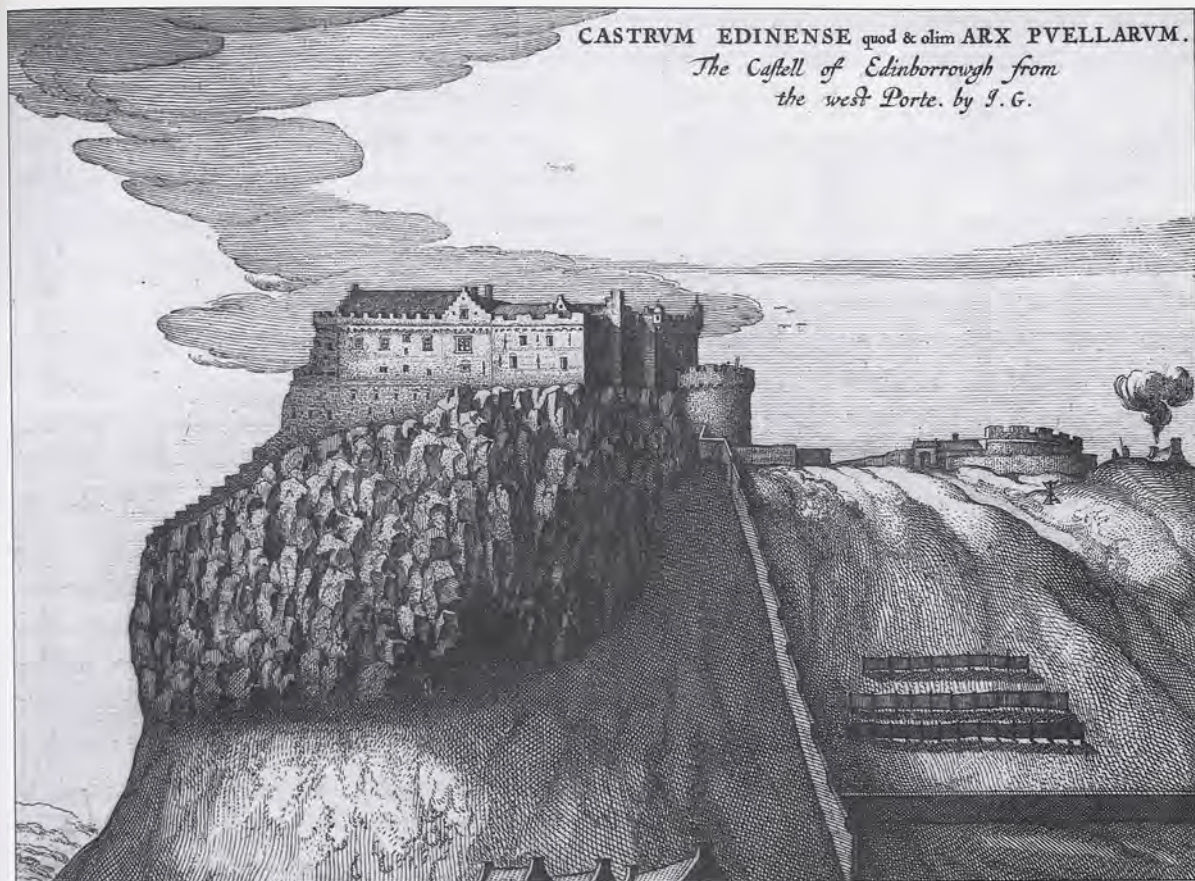 CASTRVM EDINENSE quod & olim ARX PVELLARVM.
The Castell of Edinborrowgh from
the west Porte. by J. G.